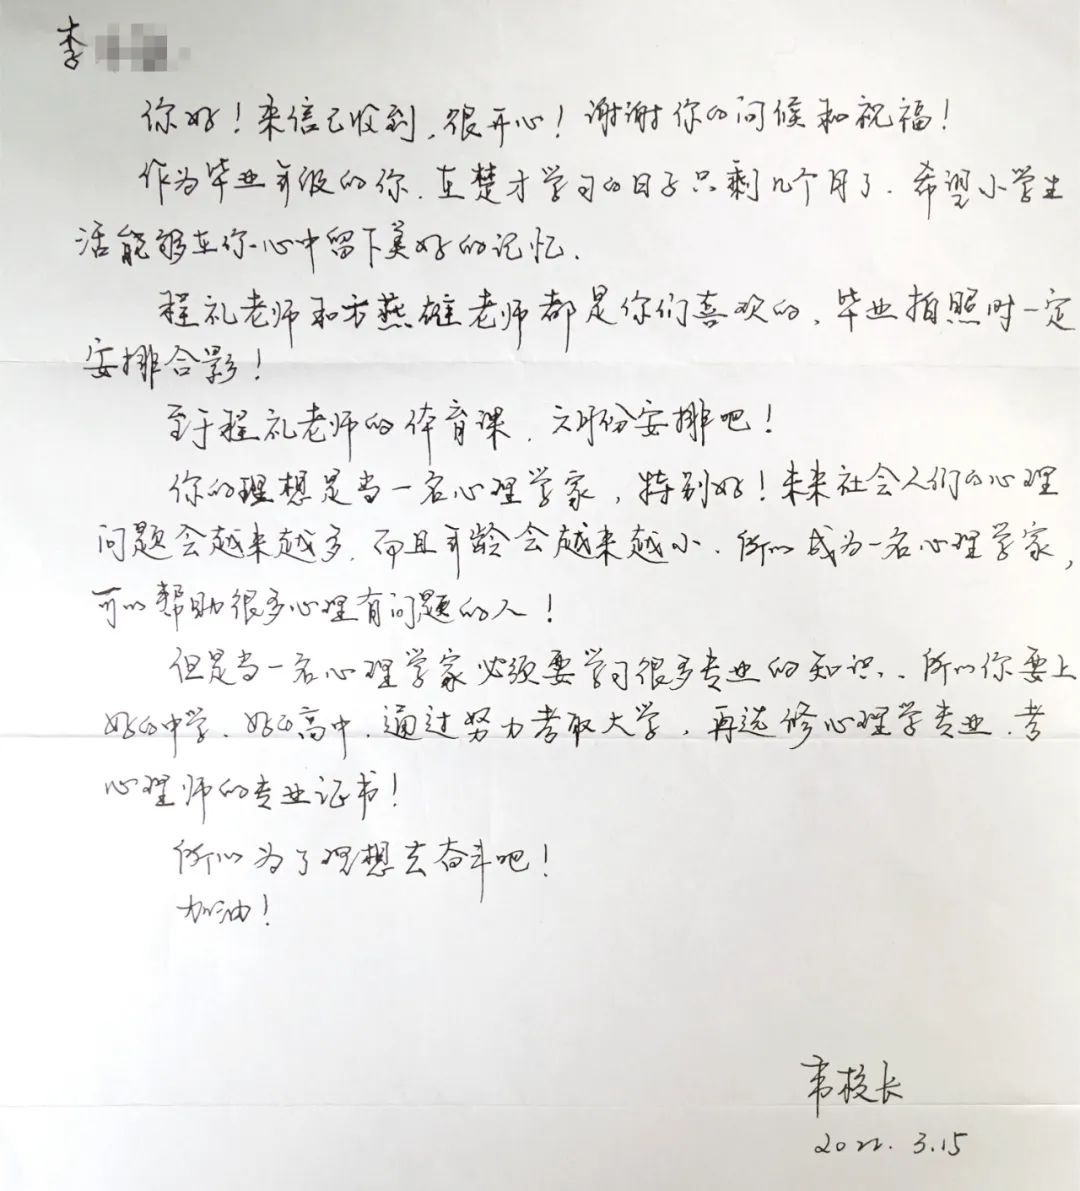 李
你好！来信已收到，很开心！谢谢你的问候和祝福！
作为毕业年级的你，在楚才学习的日子只剩几个月了，希望小学生
活能够在你心中留下美好的记忆．
程礼老师和方燕雄老师都是你们喜欢的，毕业拍照时一定
安排合影！
至于程礼老师的体育课，六月份安排吧！
你的理想是当一名心理学家，特别好！未来社会人们的心理
问题会越来越多，而且年龄会越来越小．所以成为一名心理学家，
可以帮助很多心理有问题的人！
但是当一名心理学家必须要学习很多专业的知识．所以你要上
好的中学、好的高中，通过努力考取大学，再选修心理学专业，考
心理师的专业证书！
所以为了理想去奋斗吧！
加油！
韦校长
2022.3.15